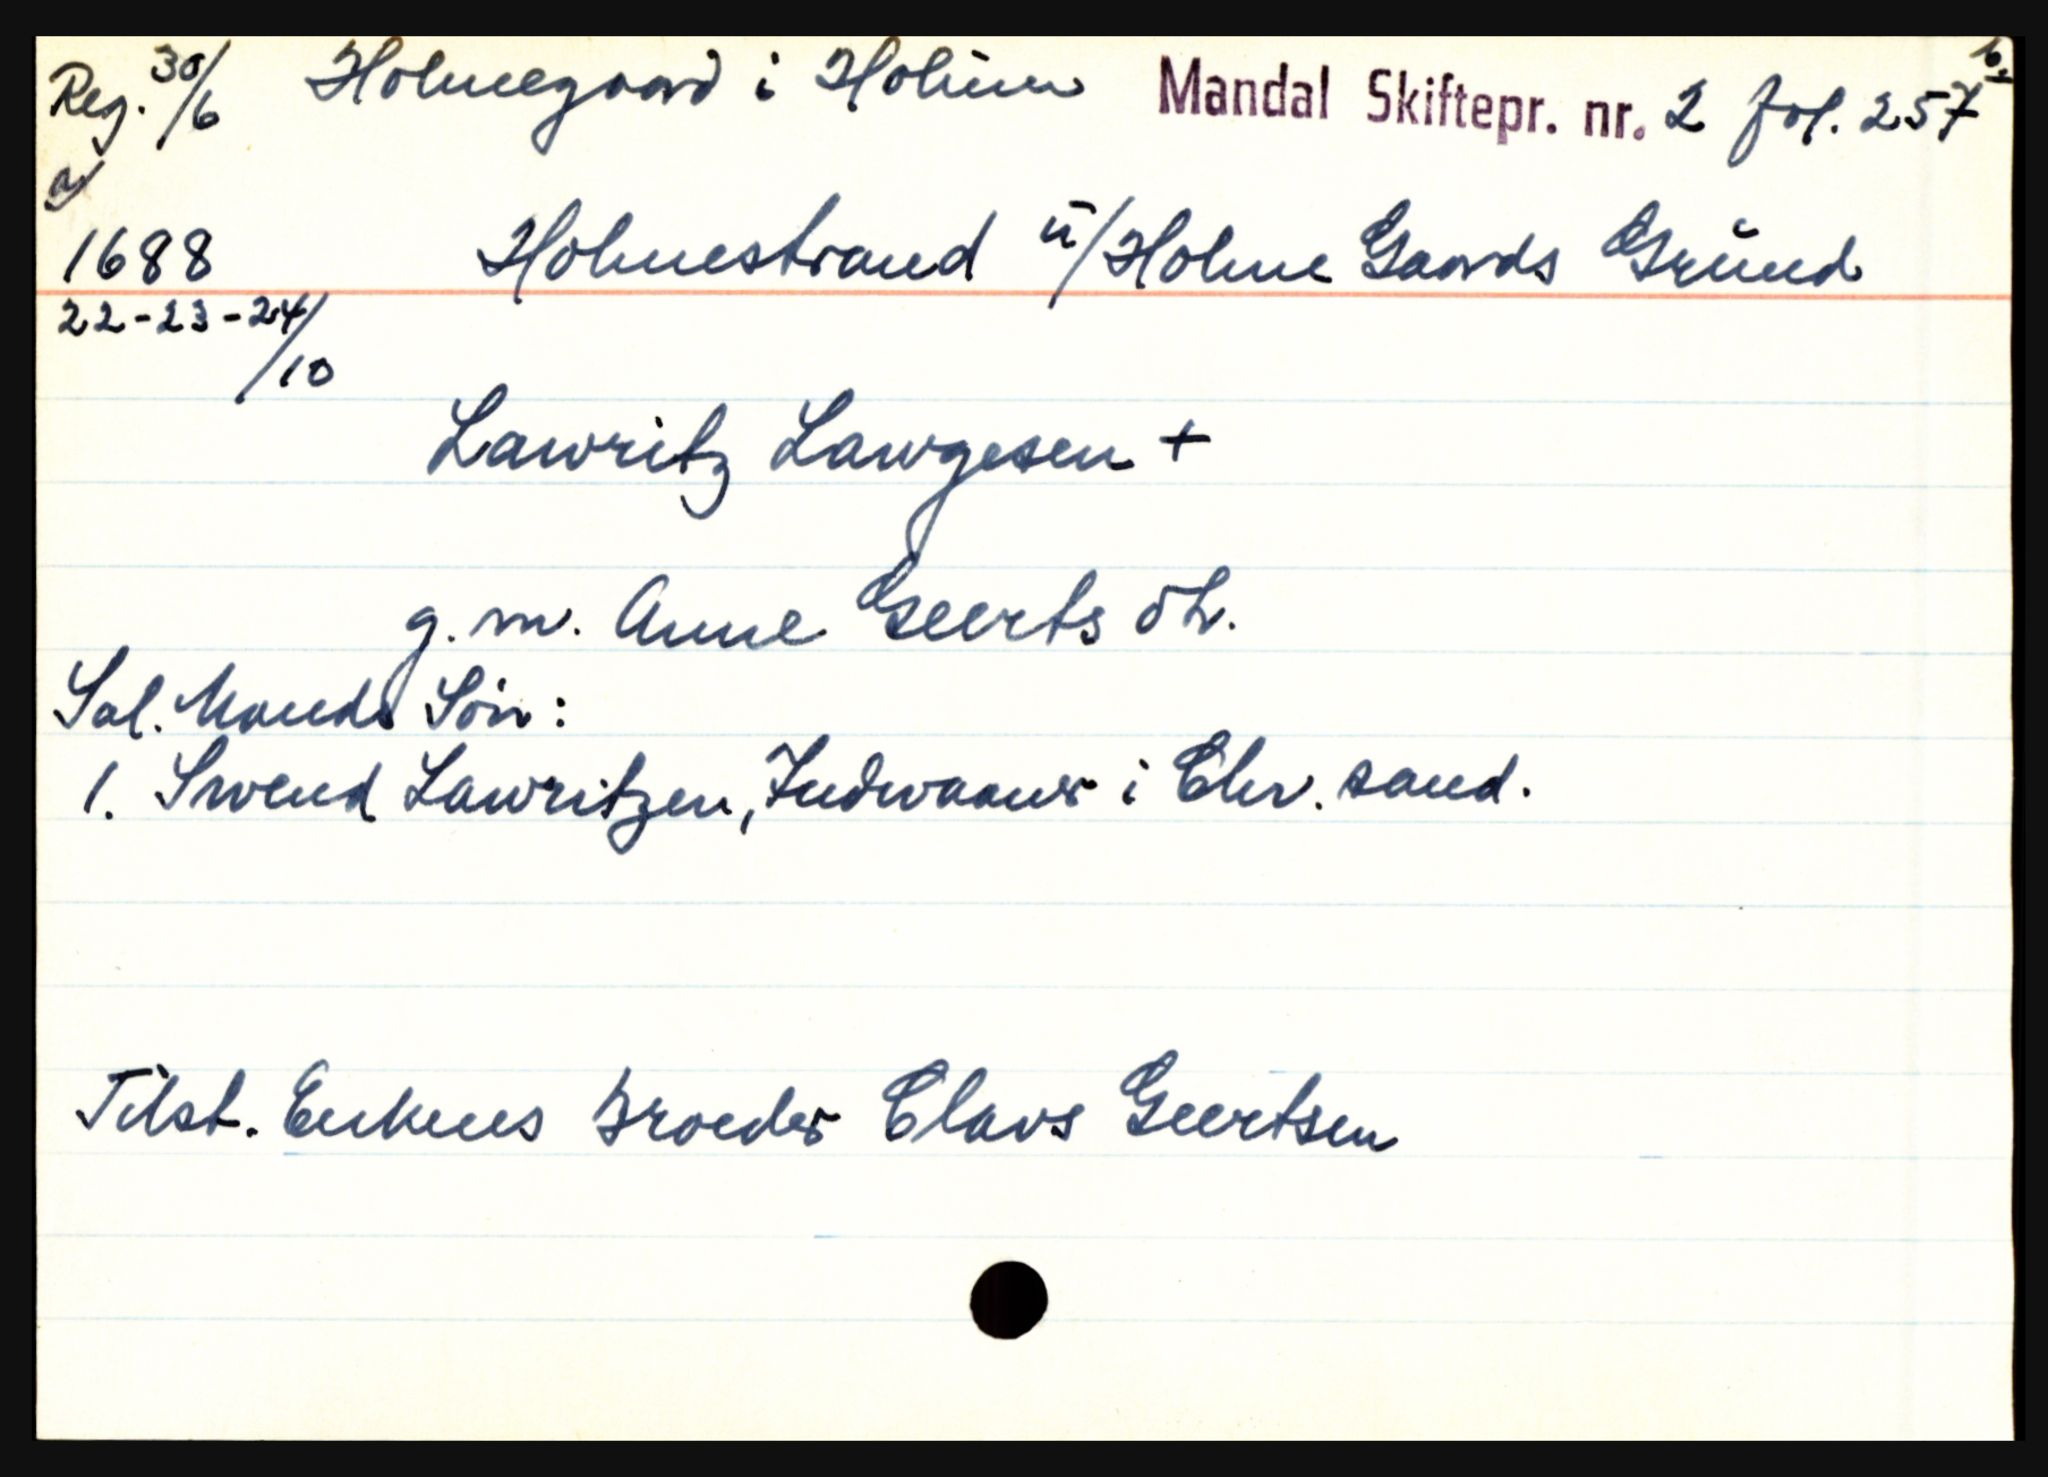 Reg. 30/6 Holmegaard i Holum Mandal Skiftepr. nr. 2 fol. 257 b.
a/
1688 Holmestrand ŭ/Holme Gaards Grŭnd
22-23-24/10
Lawritz Lawgesen +
g. m. Anne Geerts dtr.
Sal. Mands Sön:
1. Swend Lawritzen, Indwaaner i Chr. sand.
Tilst. Enkens Broeder Claus Geertsen